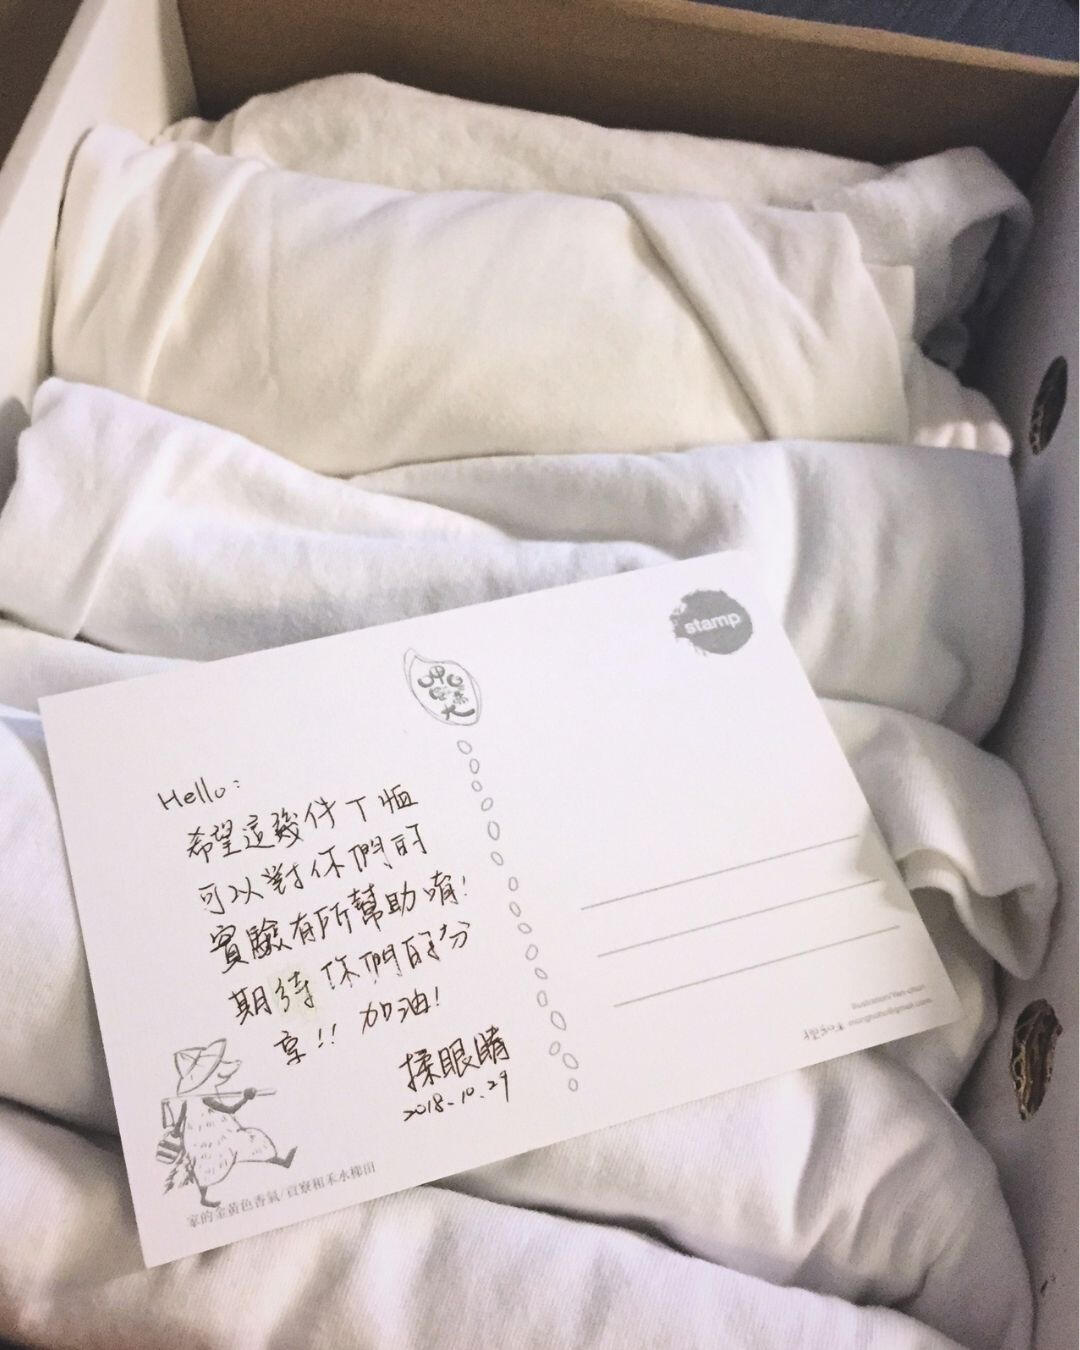 stamp
Hello:
希望這幾件T恤
可以對你們的
實驗有所幫助唷!
期待你們的分
享!! 加油!
揉眼睛
2018.10.29
家的金黃色香氣/貢寮和禾水梯田
Illustration/Yen-chun